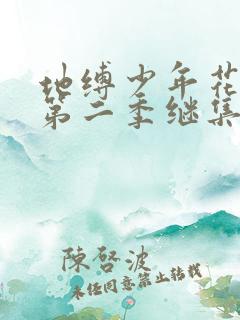 地缚少年花
第二季继集
陳啓波
未经同意禁止转载